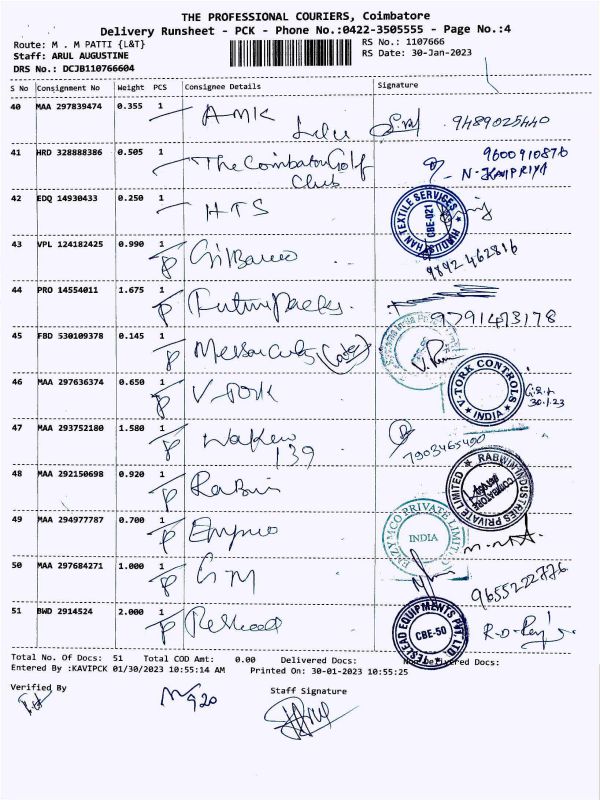 THE PROFESSIONAL COURIERS, Coimbatore
Delivery Runsheet - PCK - Phone No.:0422-3505555 - Page No.:4
Route: M . M PATTI {L&T} RS No.: 1107666
Staff: ARUL AUGUSTINE RS Date: 30-Jan-2023
DRS No.: DCJB110766604
S No Consignment No Weight PCS Consignee Details Signature
40 MAA 297839474 0.355 1 AMK 9489025440
41 HRD 328888386 0.505 1 The Coimbatore Golf 9600910876
Club N. KAVIPRIYA
42 EDQ 14930433 0.250 1 HTS
HINDUSTHAN TEXTILE SERVICES CBE-021
43 VPL 124182425 0.990 1 Gilbarco 9842462816
44 PRO 14554011 1.675 1 Future Packs. 9791473178
45 FBD 530109378 0.145 1
46 MAA 297636374 0.650 1 V-TORK
V-TORK CONTROLS INDIA
30.1.23
47 MAA 293752180 1.580 1 139 7903465400
48 MAA 292150698 0.920 1 Rabwin
RABWIN INDUSTRIES PRIVATE LIMITED COIMBATORE
49 MAA 294977787 0.700 1 Enzymco
ENZYMCO PRIVATE LIMITED INDIA
50 MAA 297684271 1.000 1 GM 9655222776
51 BWD 2914524 2.000 1
TESLEAD EQUIPMENTS PVT. LTD CBE-50
Total No. Of Docs: 51 Total COD Amt: 0.00 Delivered Docs: Non Delivered Docs:
Entered By :KAVIPCK 01/30/2023 10:55:14 AM Printed On: 30-01-2023 10:55:25
Verified By Staff Signature
920